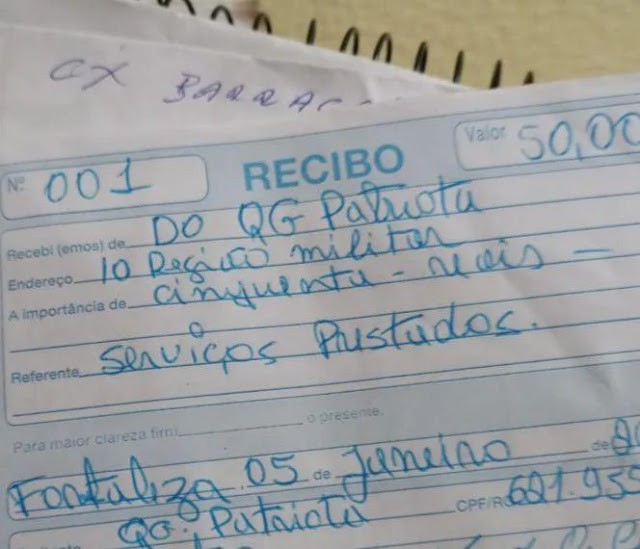 CX BARRAC
Nº 001 RECIBO Valor 50,00
Recebi (emos) de DO QG Patriota
Endereço 10 Região militar
A importância de cinquenta - reais -
Referente serviços Prestados.
Para maior clareza firm o presente.
Fortaleza 05 de Janeiro de
QG: Patriota CPF/R 621.955